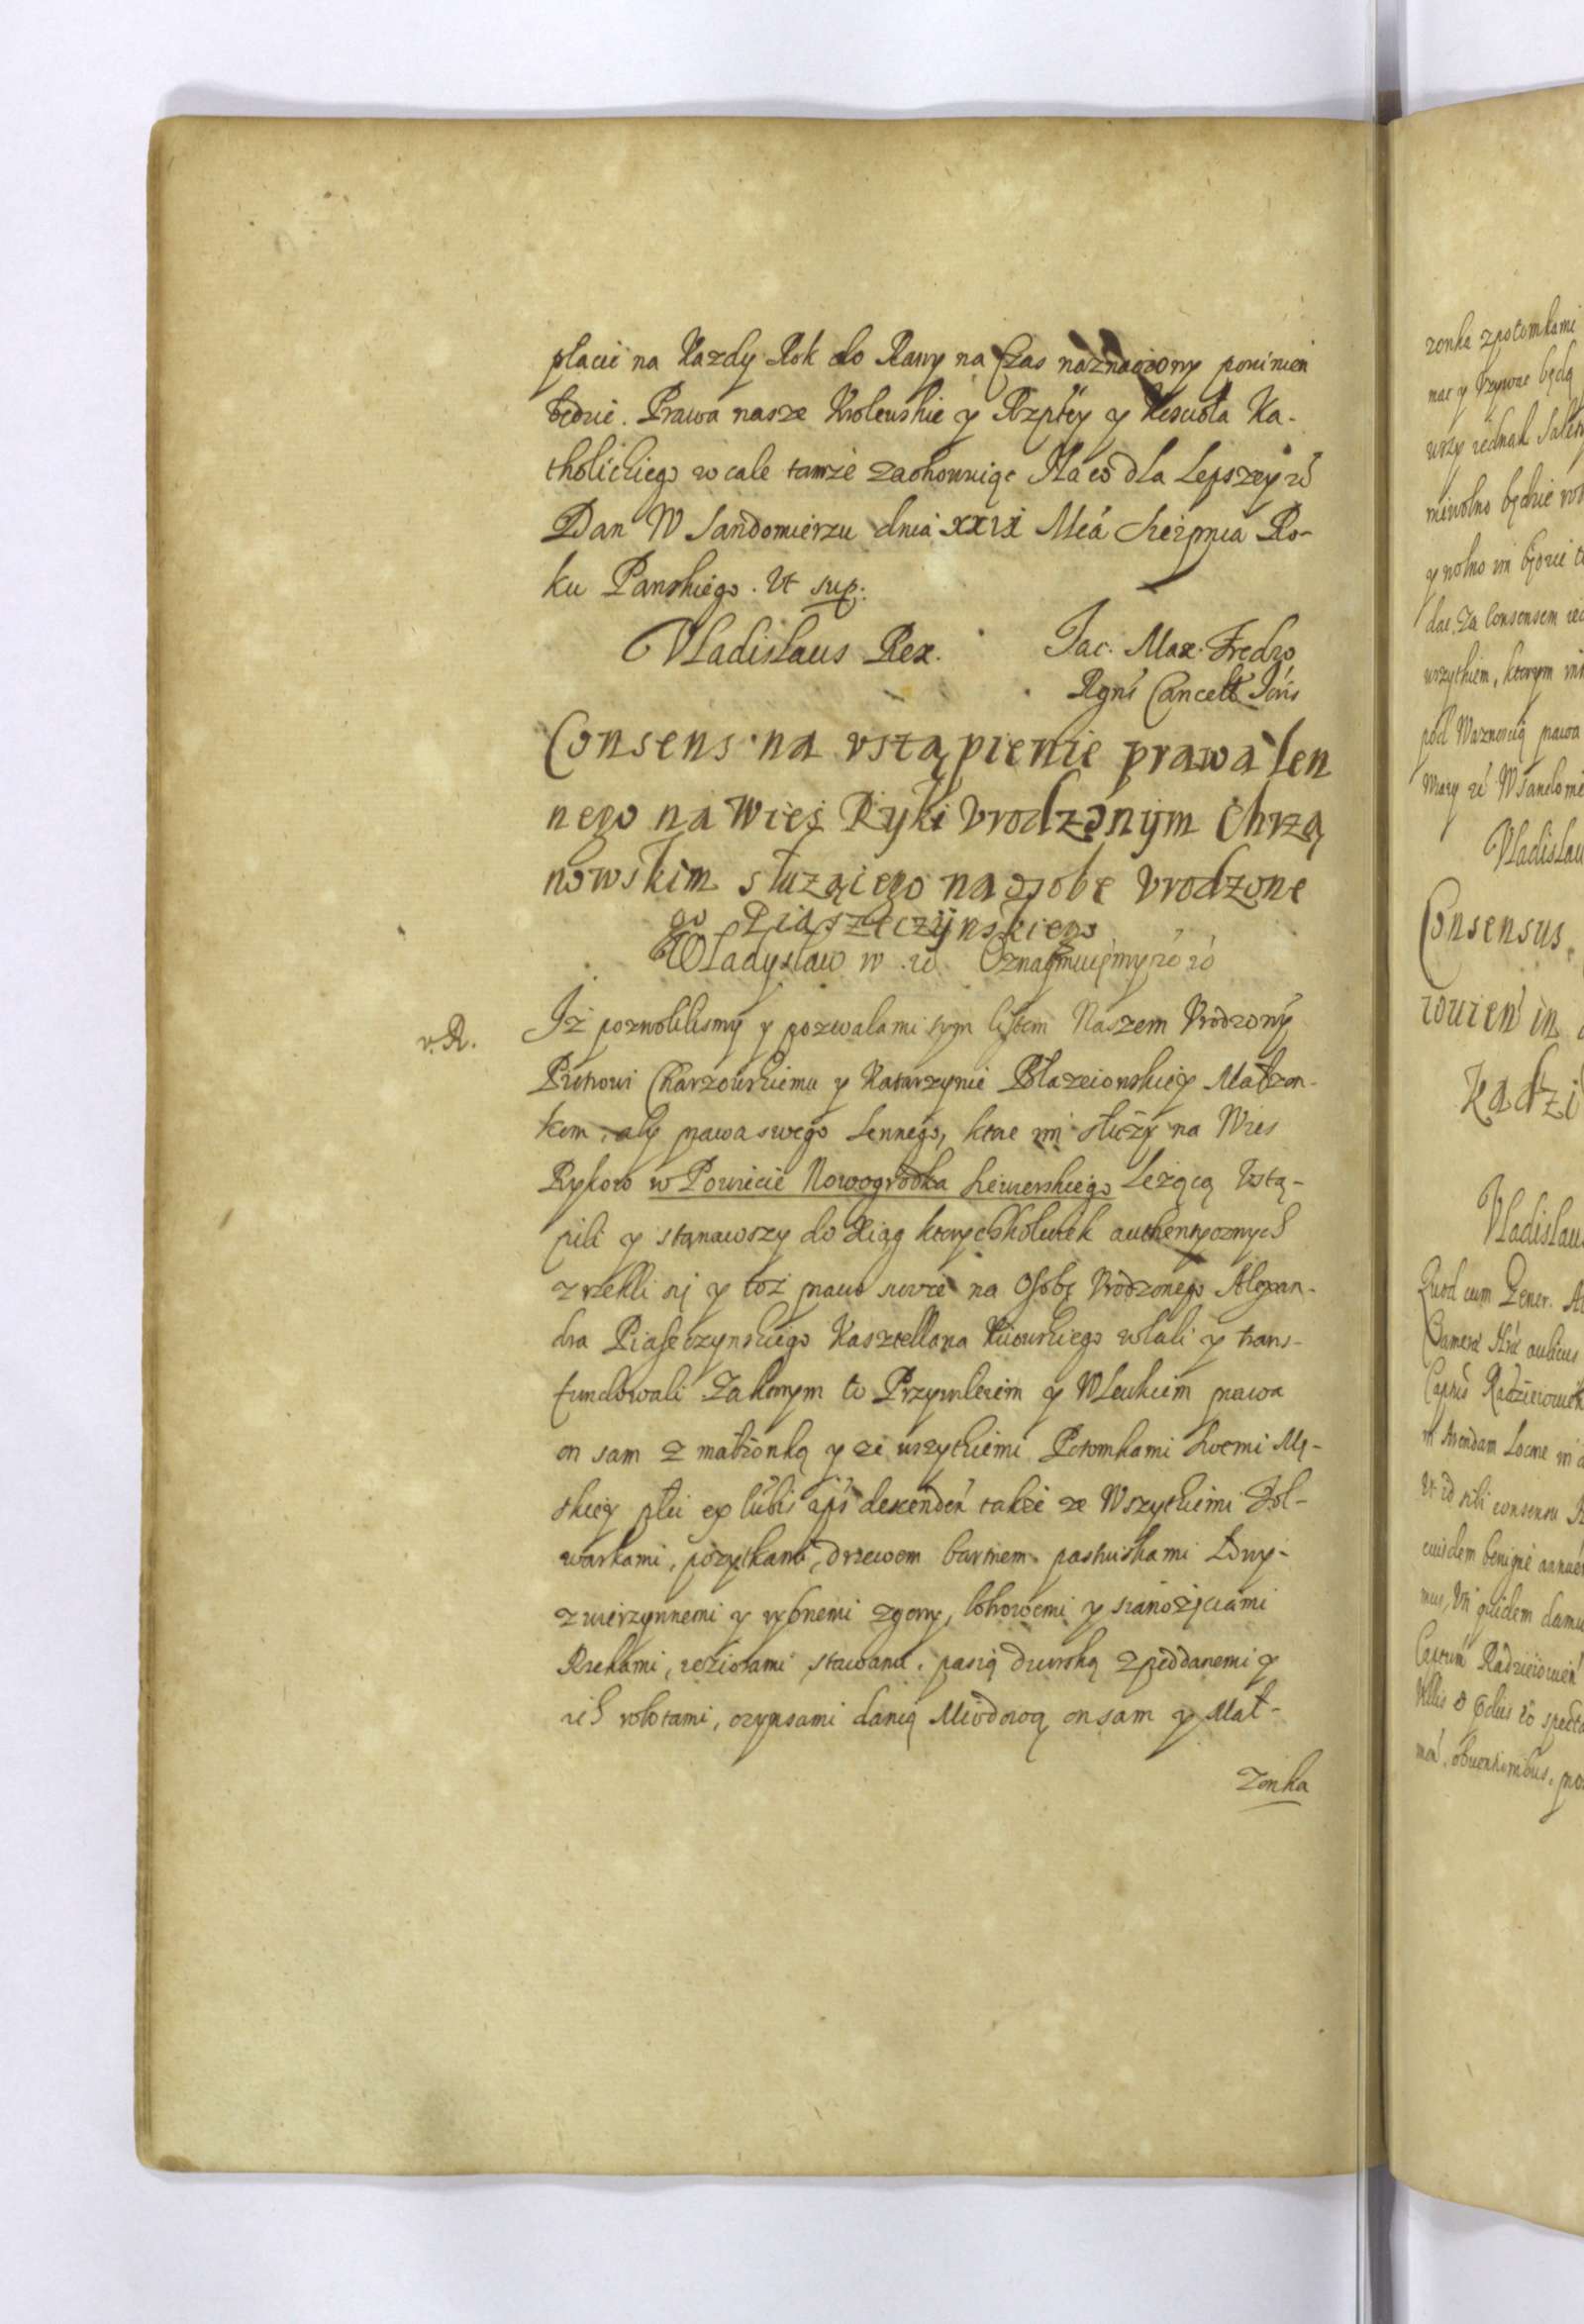 płacić na Kazdy Rok do Rawy na Czas naznaczony powinien
będzie. Prawa nasze Krolewskie y Rzptey y Kościoła Ka-
tholickiego w cale tamże zachowuiąc Na co dla Lepszey w̃
Dan W Sandomierzu dnia XXIX Mca Sierpnia Ro-
ku Panskiego. Ut sup:
Vladislaus Rex. Jac. Max. Fredro
Rgni Cancell
Consens na ustąpienie prawa len
nego na Wies Ryki Urodzonym Chrzą
nowskim służącego na osobę Urodzone
go Piaszeczynskiego
Władysław w. w. Oznaymuiemy
v. R. Iż pozwolilismy y pozwalamy tym listem Naszem Urodzony
Piotrowi Charzowskiemu y Katarzynie Błazeiowskiey Małzon-
kom, aby prawa swego Lennego, ktore im służy na Wies
Rykow w Powiecie Nowogrodka Siewierskiego Leżącą Ustą-
pili y stanąwszy do Xiąg ktorychkolwiek authentycznych
zrzekli się y toż prawo swoie na Osobę Urodzonego Alexan-
dra Piaseczynskiego Kasztellana Kiiowskiego wlali y trans-
fundowali Za ktorym to Przywileiem y Wlewkiem prawa
on sam z małżonką y ze wszytkiemi Potomkami swemi Mę-
skiey płci ex lubis descenden także ze Wszytkiemi Fol-
warkami, pożytkami, drzewem bartnem. pastwiskami Łowy-
zwierzynnemi y rybnemi zgony, bobrowemi y sianożęciami
Rzekami, ieziorami stawami. pasią dworską z poddanemi y
ich robotami, czynszami danią Miodową on sam y Mał-
żonka
zonka z potomkami
nac y Uzywac będą
wszy iednak
niewolno będzie
y wolno im będzie
dac. Za Consensem
wszytkiem, ktorym
pod Waznoscią prawa
Vladislau
Consensus
kadzi
Vladislaus
Quod cum Gener.
aulicus
in Arendam
Ut id sibi consensu
eiusdem benigne annue
quidem damus